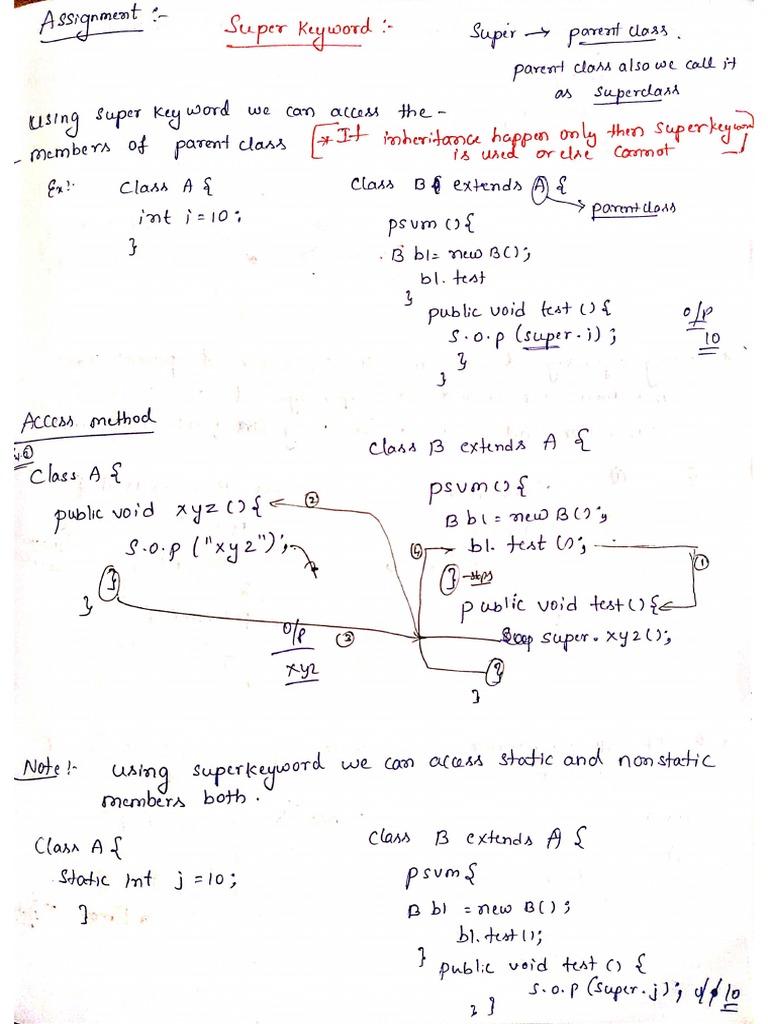 Assignment :-
Super Keyword :-
Super → parent class.
parent class also we call it
as superclass
using super key word we can access the -
- members of parent class [* If inheritance happen only then superkeyword
is used or else cannot]
Ex:-
Class A {
int i = 10;
}
Class B { extends A {
parent class
psvm () {
B b1 = new B();
b1. test
}
public void test () {
S.o.p (super.i);
}
}
O/P
10
Access method
Class A {
public void xyz () { ②
S.o.p ("xyz");
}
}
O/P ③
xyz
Class B extends A {
psvm () {
B b1 = new B();
④ b1. test (); ①
} stops
public void test () {
super. xyz ();
}
}
Note :- using superkeyword we can access static and nonstatic
members both.
Class A {
Static Int j = 10;
}
Class B extends A {
psvm {
B b1 = new B();
b1. test ();
}
public void test () {
S.o.p (super.j); o/p 10
} }